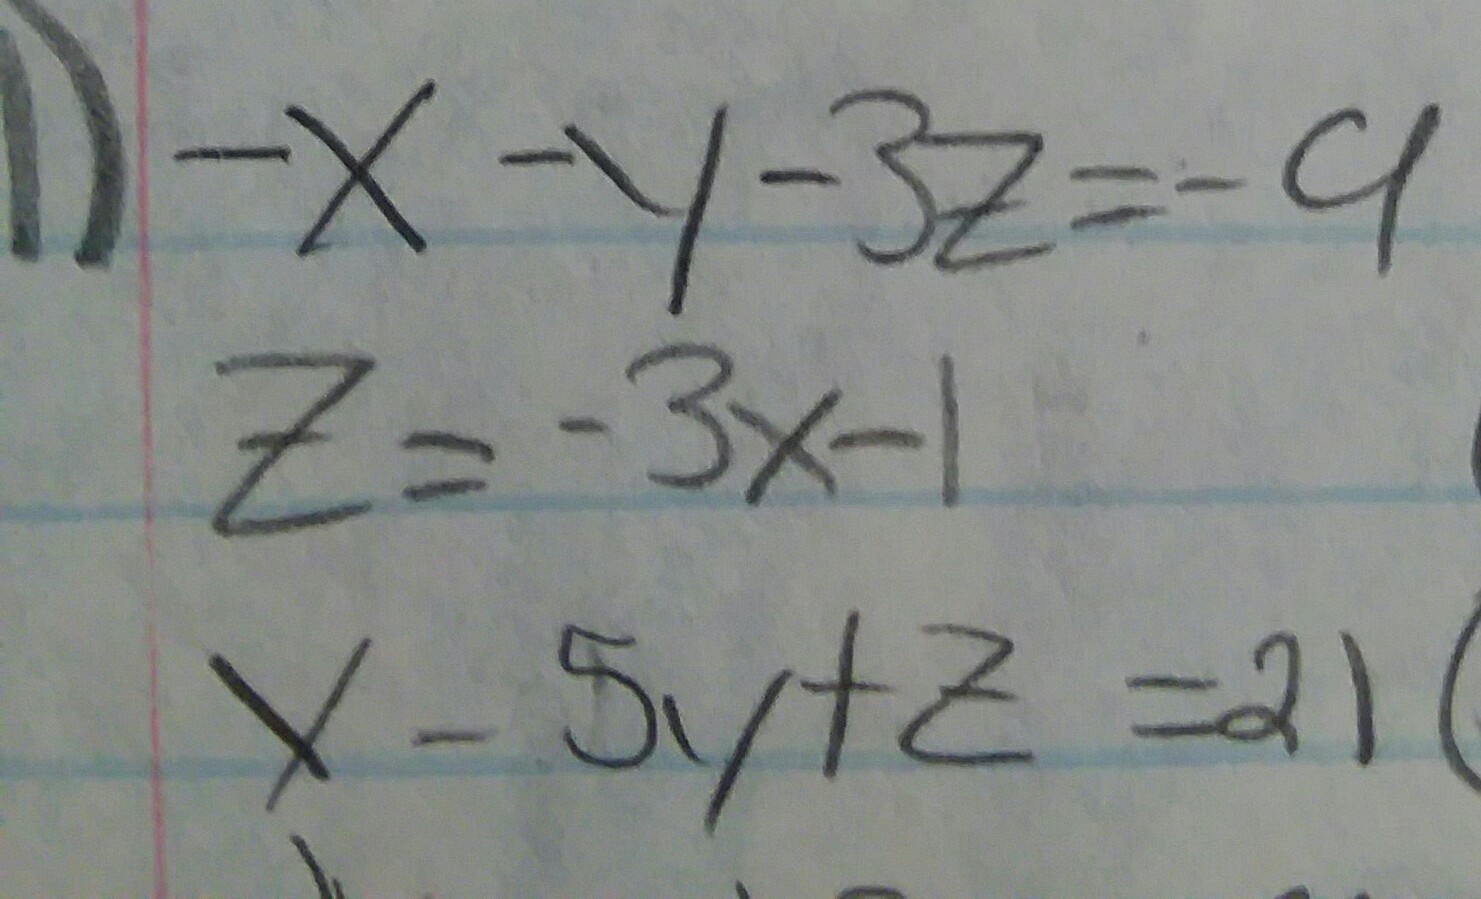 1) -x -y -3z = -9
z = -3x - 1
x - 5y + z = 21 (